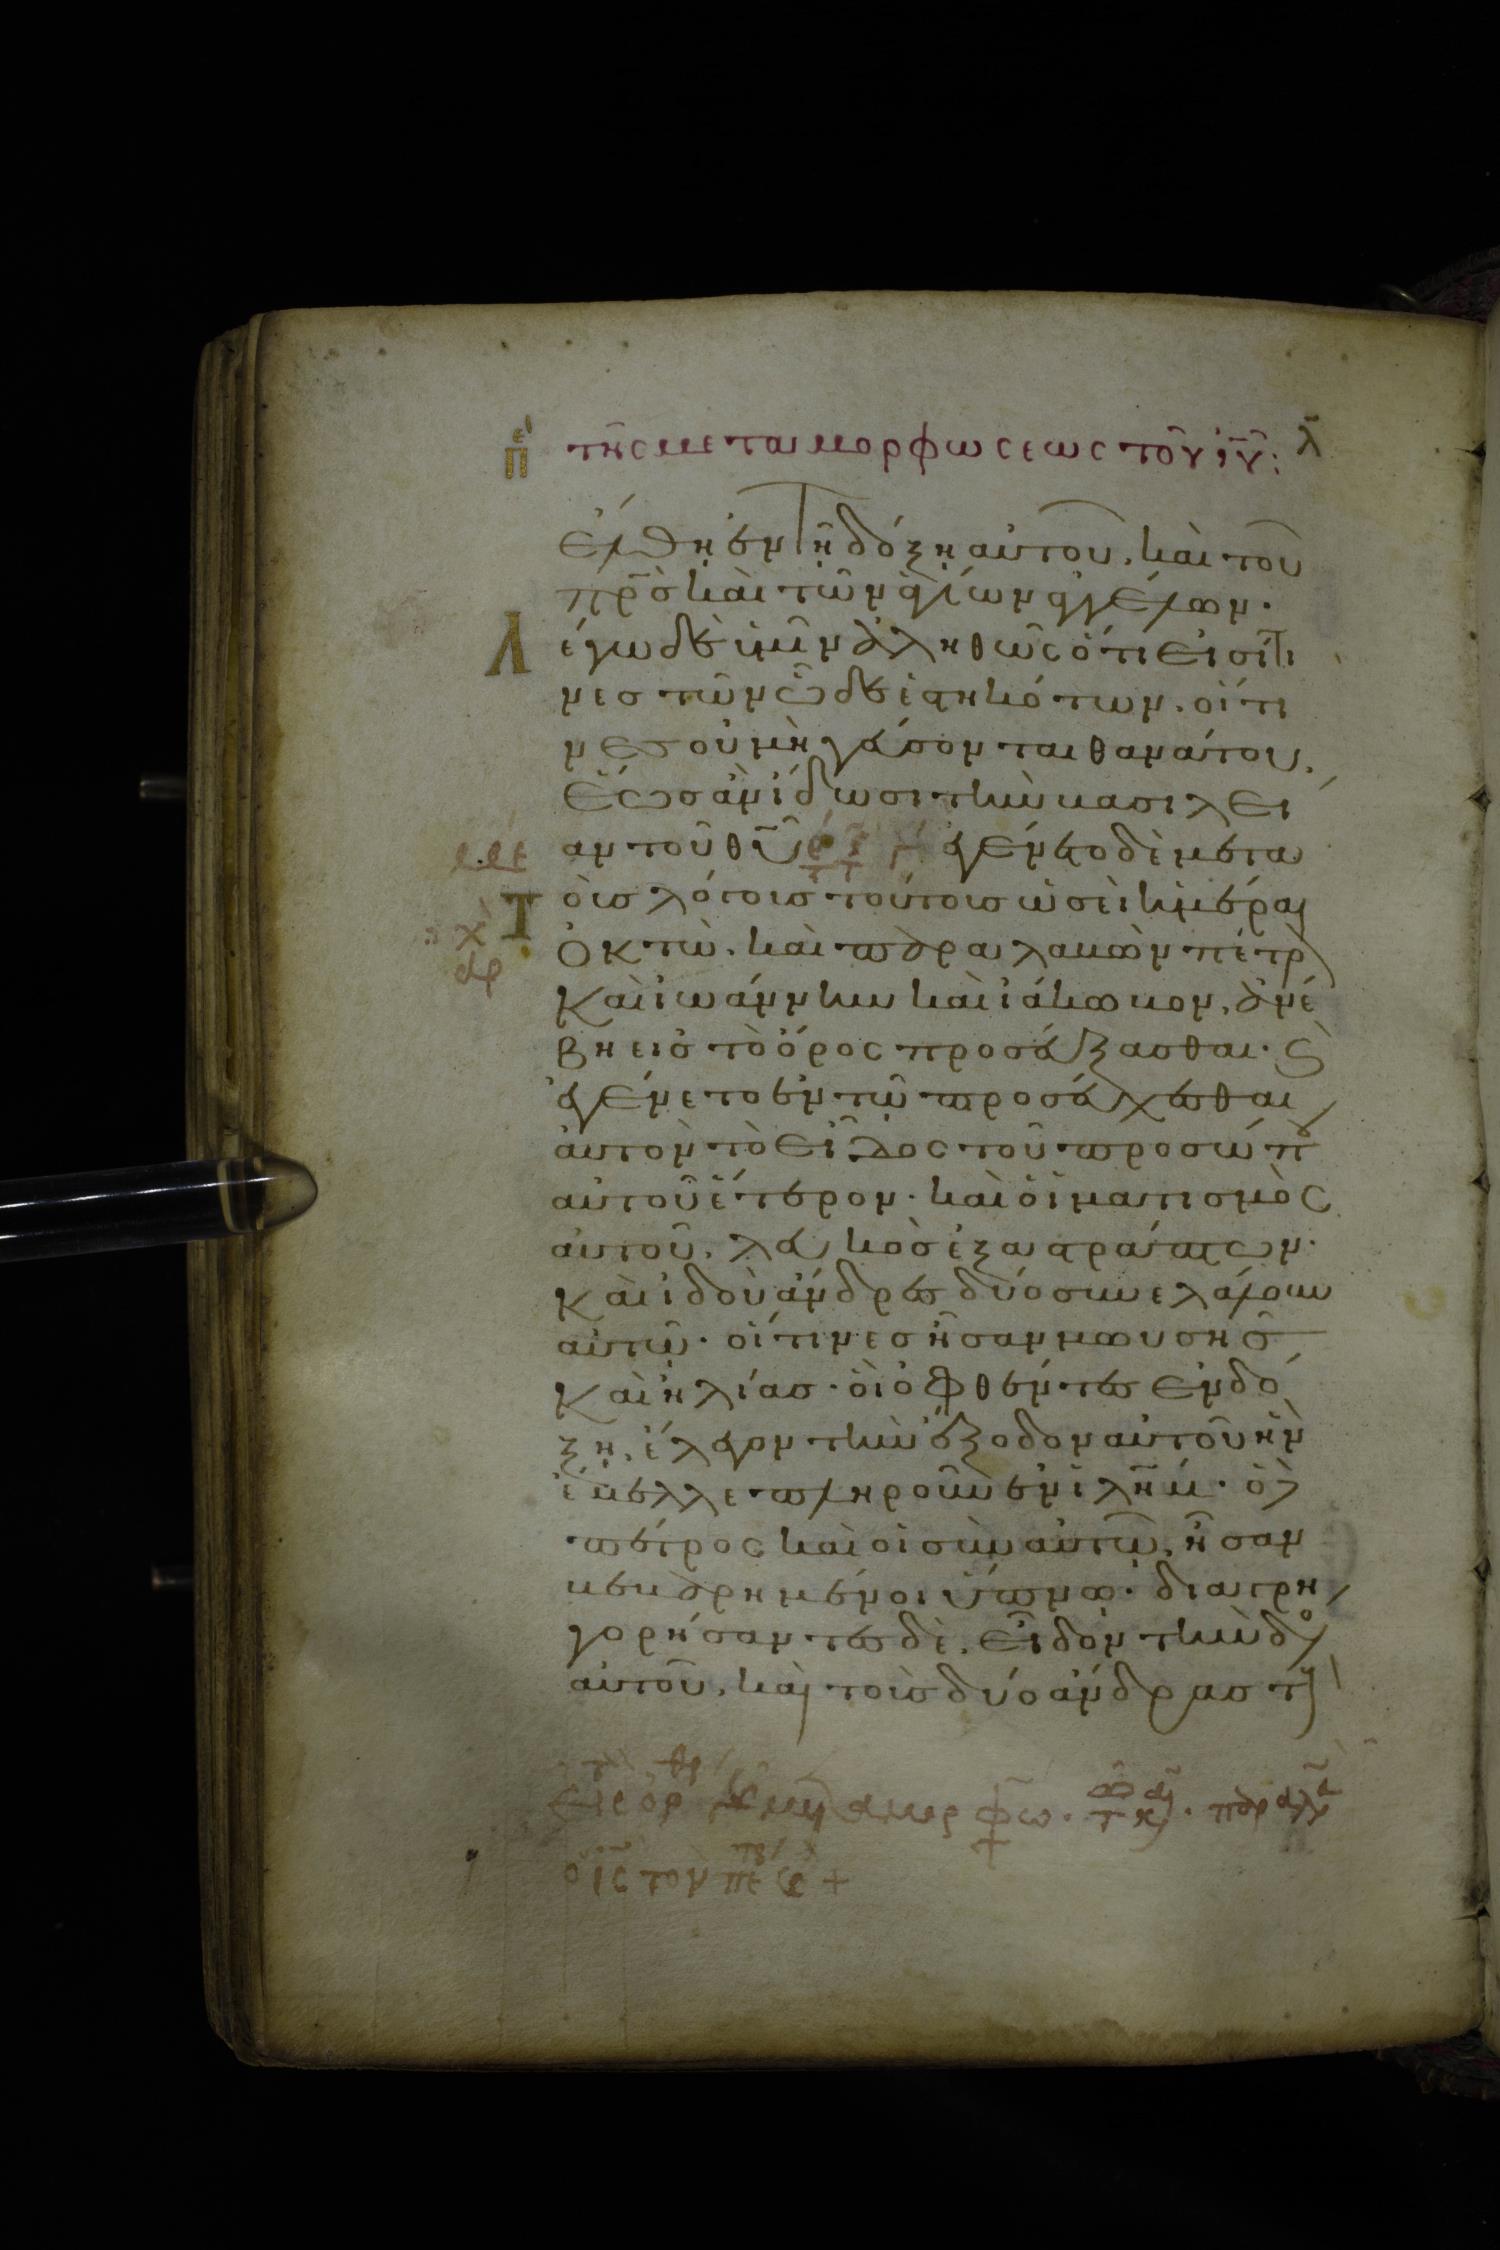 τῆς μεταμορφώσεως τοῦ ιῦ: λ
ἔλθη ἐν τῆ δόξη αὐτοῦ, καὶ τοῦ
πρσ̀ καὶ τῶν ἁγίων ἀγγέλων.
Λέγω δὲ ὑμῖν ἀληθῶς ὅτι εἰσί τι
νες τῶν ὧδε ἑστηκότων. οἵτι
νες οὐ μὴ γεύσονται θανάτου,
ἕως ἂν ἴδωσι τὴν βασιλεί
αν τοῦ θῦ ἐγένετο δὲ μετὰ
τοὺς λόγους τούτους ὡσεὶ ἡμέραι
ὀκτὼ. καὶ παραλαβὼν πέτρ
καὶ ἰωάννην καὶ ἰάκωβον, ἀνέ
βη εἰς τὸ ὄρος προσεύξασθαι. Ϗ
ἐγένετο ἐν τῶ προσεύχεσθαι
αὐτὸν τὸ εἶδος τοῦ προσώπ
αὐτοῦ ἕτερον. καὶ ὁ ἱματισμὸς
αὐτοῦ, λευκὸς ἐξαστράπτων.
καὶ ἰδοὺ ἄνδρες δύο συνελάλουν
αὐτῶ. οἵτινες ἦσαν μωυσῆς
καὶ ἠλίας. οἳ ὀφθέντες ἐν δό
ξη, ἔλεγον τὴν ἔξοδον αὐτοῦ ἣν
ἔμελλε πληροῦν ἐν ἱλῆμ. ὁ δὲ
πέτρος καὶ οἱ σὺν αὐτῶ, ἦσαν
βεβαρημένοι ὕπνω. διαγρη
γορήσαντες δὲ, εἶδον τὴν δό
αὐτοῦ, καὶ τοὺς δύο ἄνδρας τ